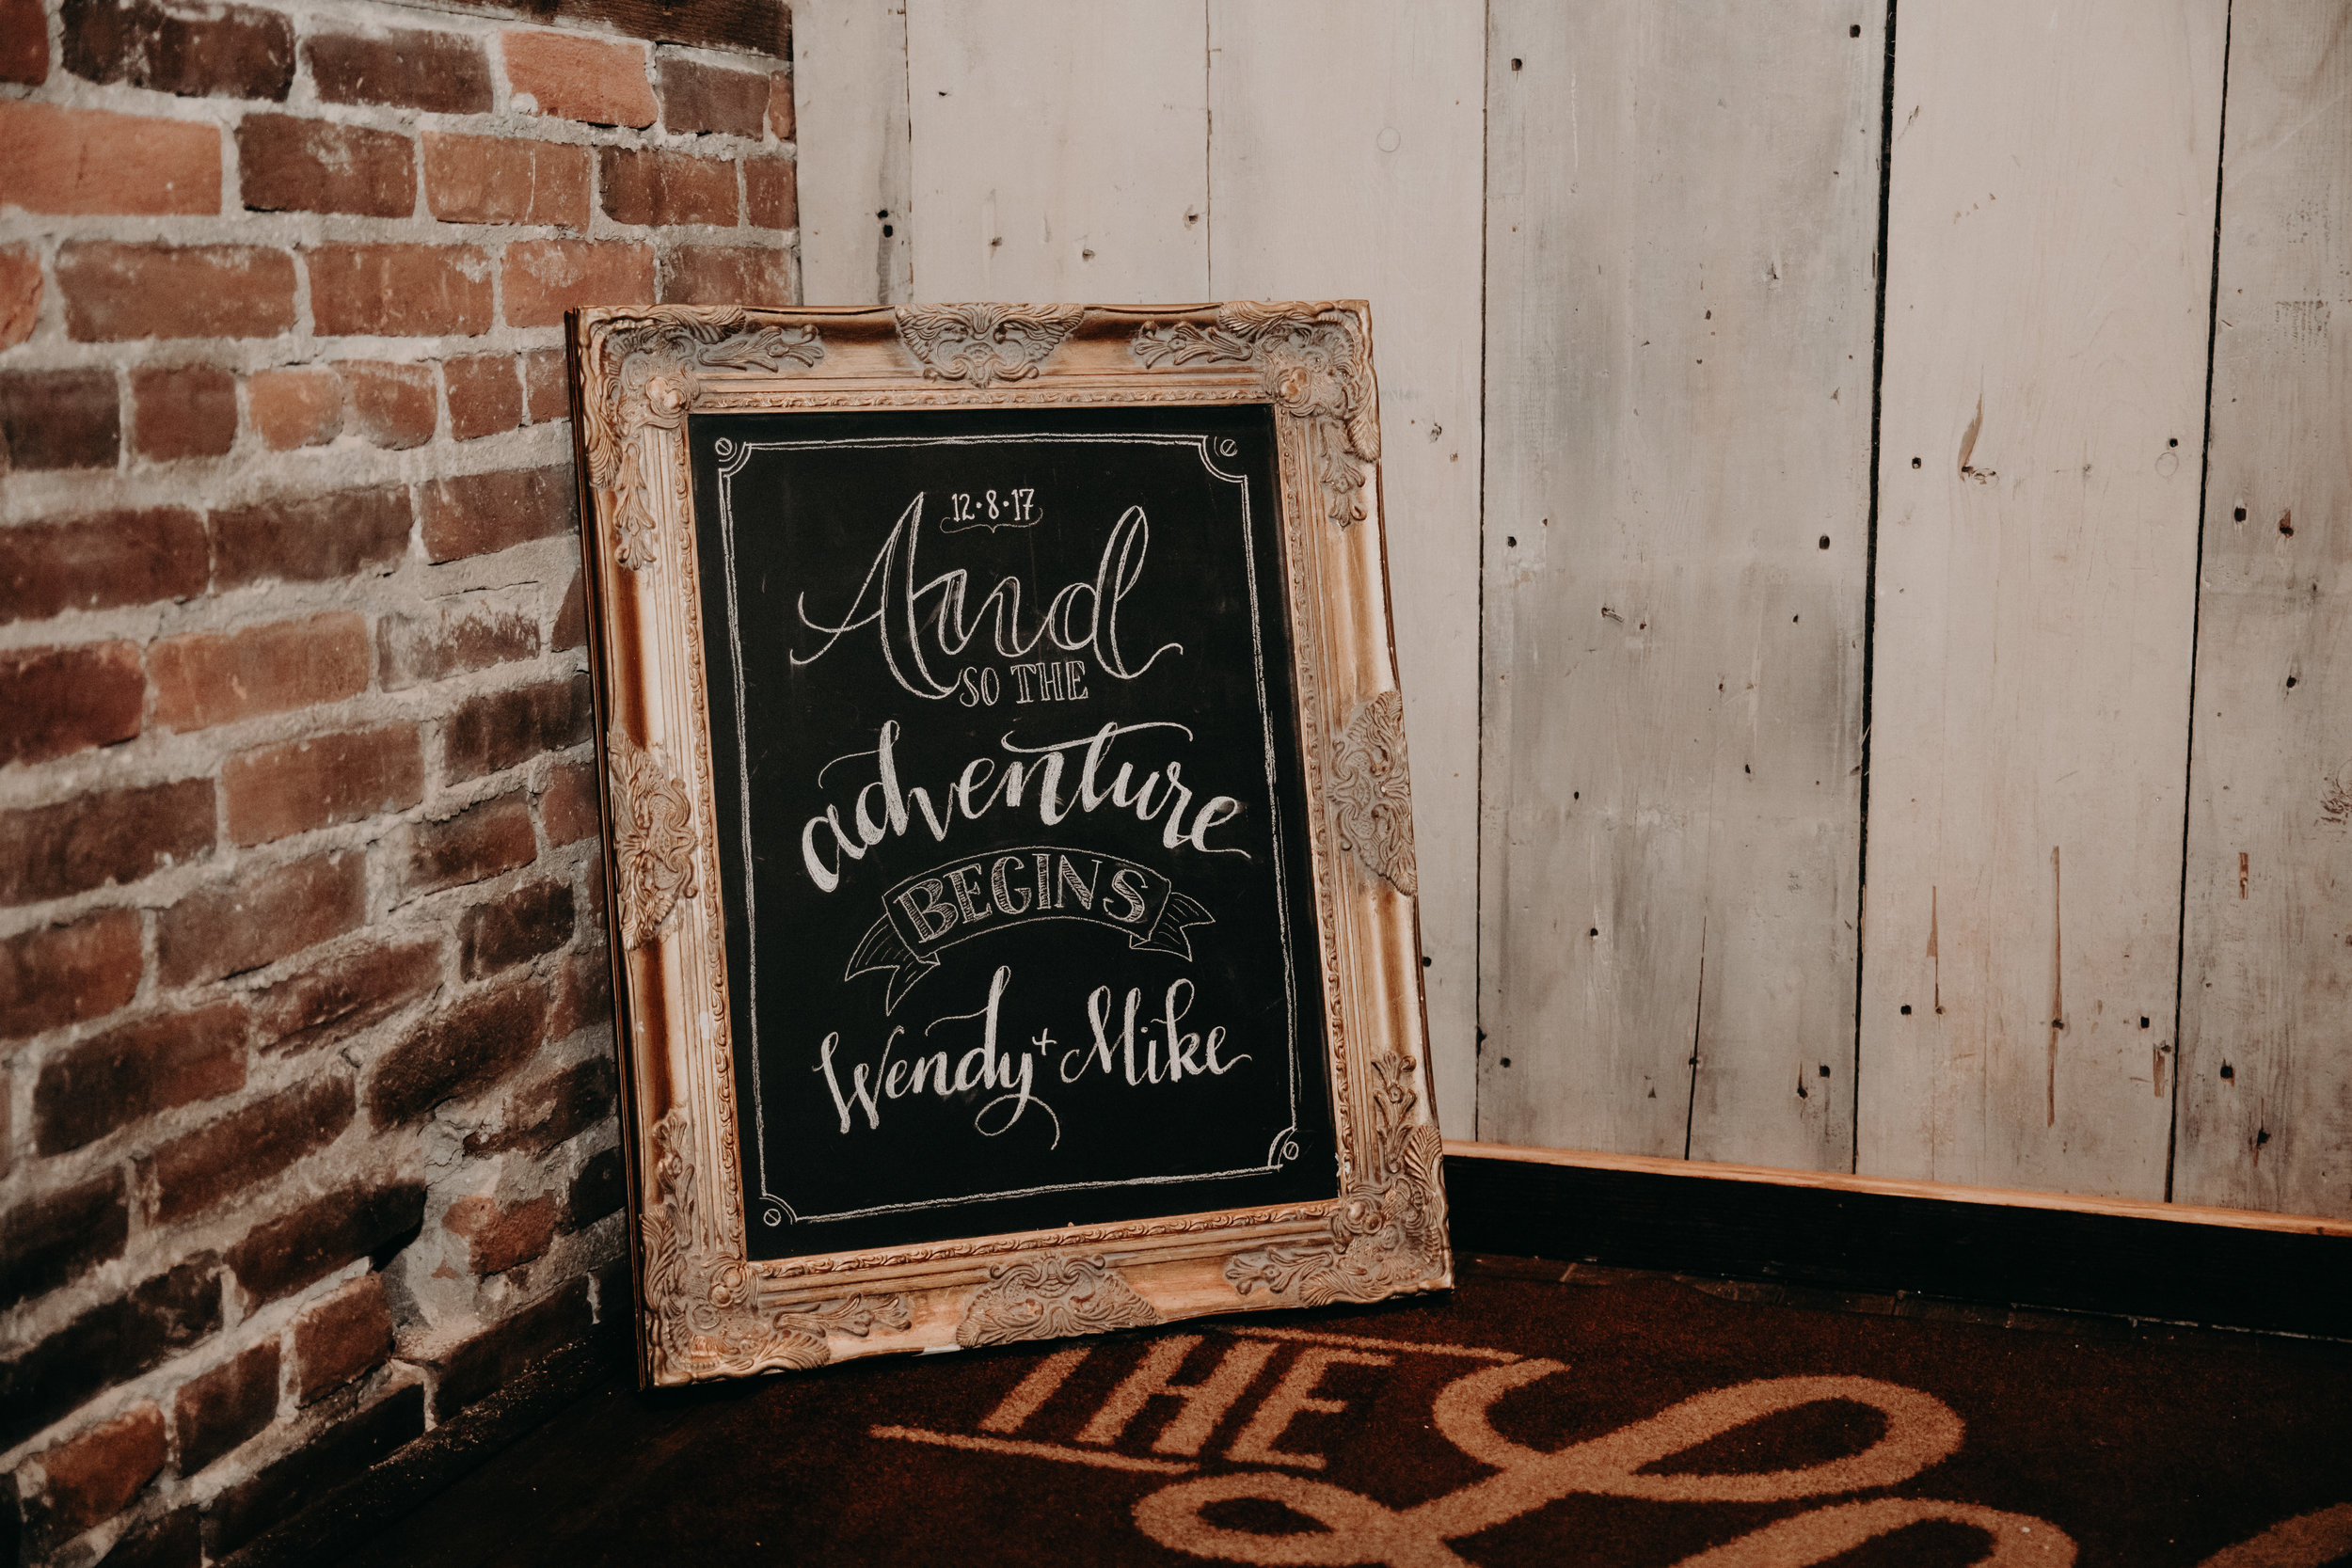 12·8·17
And
SO THE
adventure
BEGINS
Wendy + Mike
THE